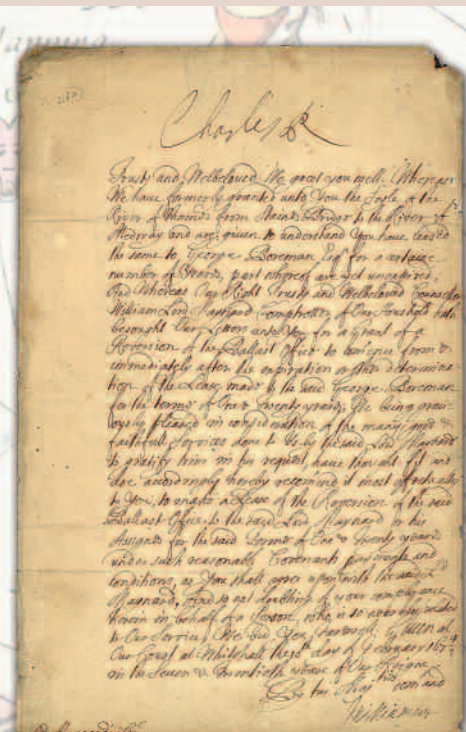 Charles R
Trusty and Welbeloved We greet you well. Whereas
We have formerly granted unto You the Soyle of ye
River of Thames from Staines Bridge to the River of
Medway and are given to understand You have leased
the same to George Boreman Esqr for a certaine
number of Yeares, part whereof are yet unexpired.
And Whereas Our Right Trusty and Welbeloved Councellor
William Lord Maynard Comptroller of Our Household hath
besought Our Letters unto You for a Grant of a
Reversion of the Ballast Office to comence from &
immediately after the expiration or other determina
tion of the Lease made to the said George Boreman
for the terme of One & Twenty yeares, We being graci
ously pleased in consideration of the many good &
faithfull Services done to Us by the said Lord Maynard
to gratify him in his request, have thought fit and
doe accordingly hereby recomend it most effectually
to You, to make a Lease of the Reversion of the said
Ballast Office to the said Lord Maynard or his
Assignes for the said Terme of One & Twenty yeares
under such reasonable Covenants payments and
conditions, as You shall agree upon with the said Ld
Maynard, And so not doubting of your complyance
herein in behalf of a Person, who is so nearly related
to Our Service, We bid You farewell. Given at
Our Court at Whitehall the day of February 167
in the Seven & Twentieth yeare of Our Reigne
By his Majties comand
Williamson